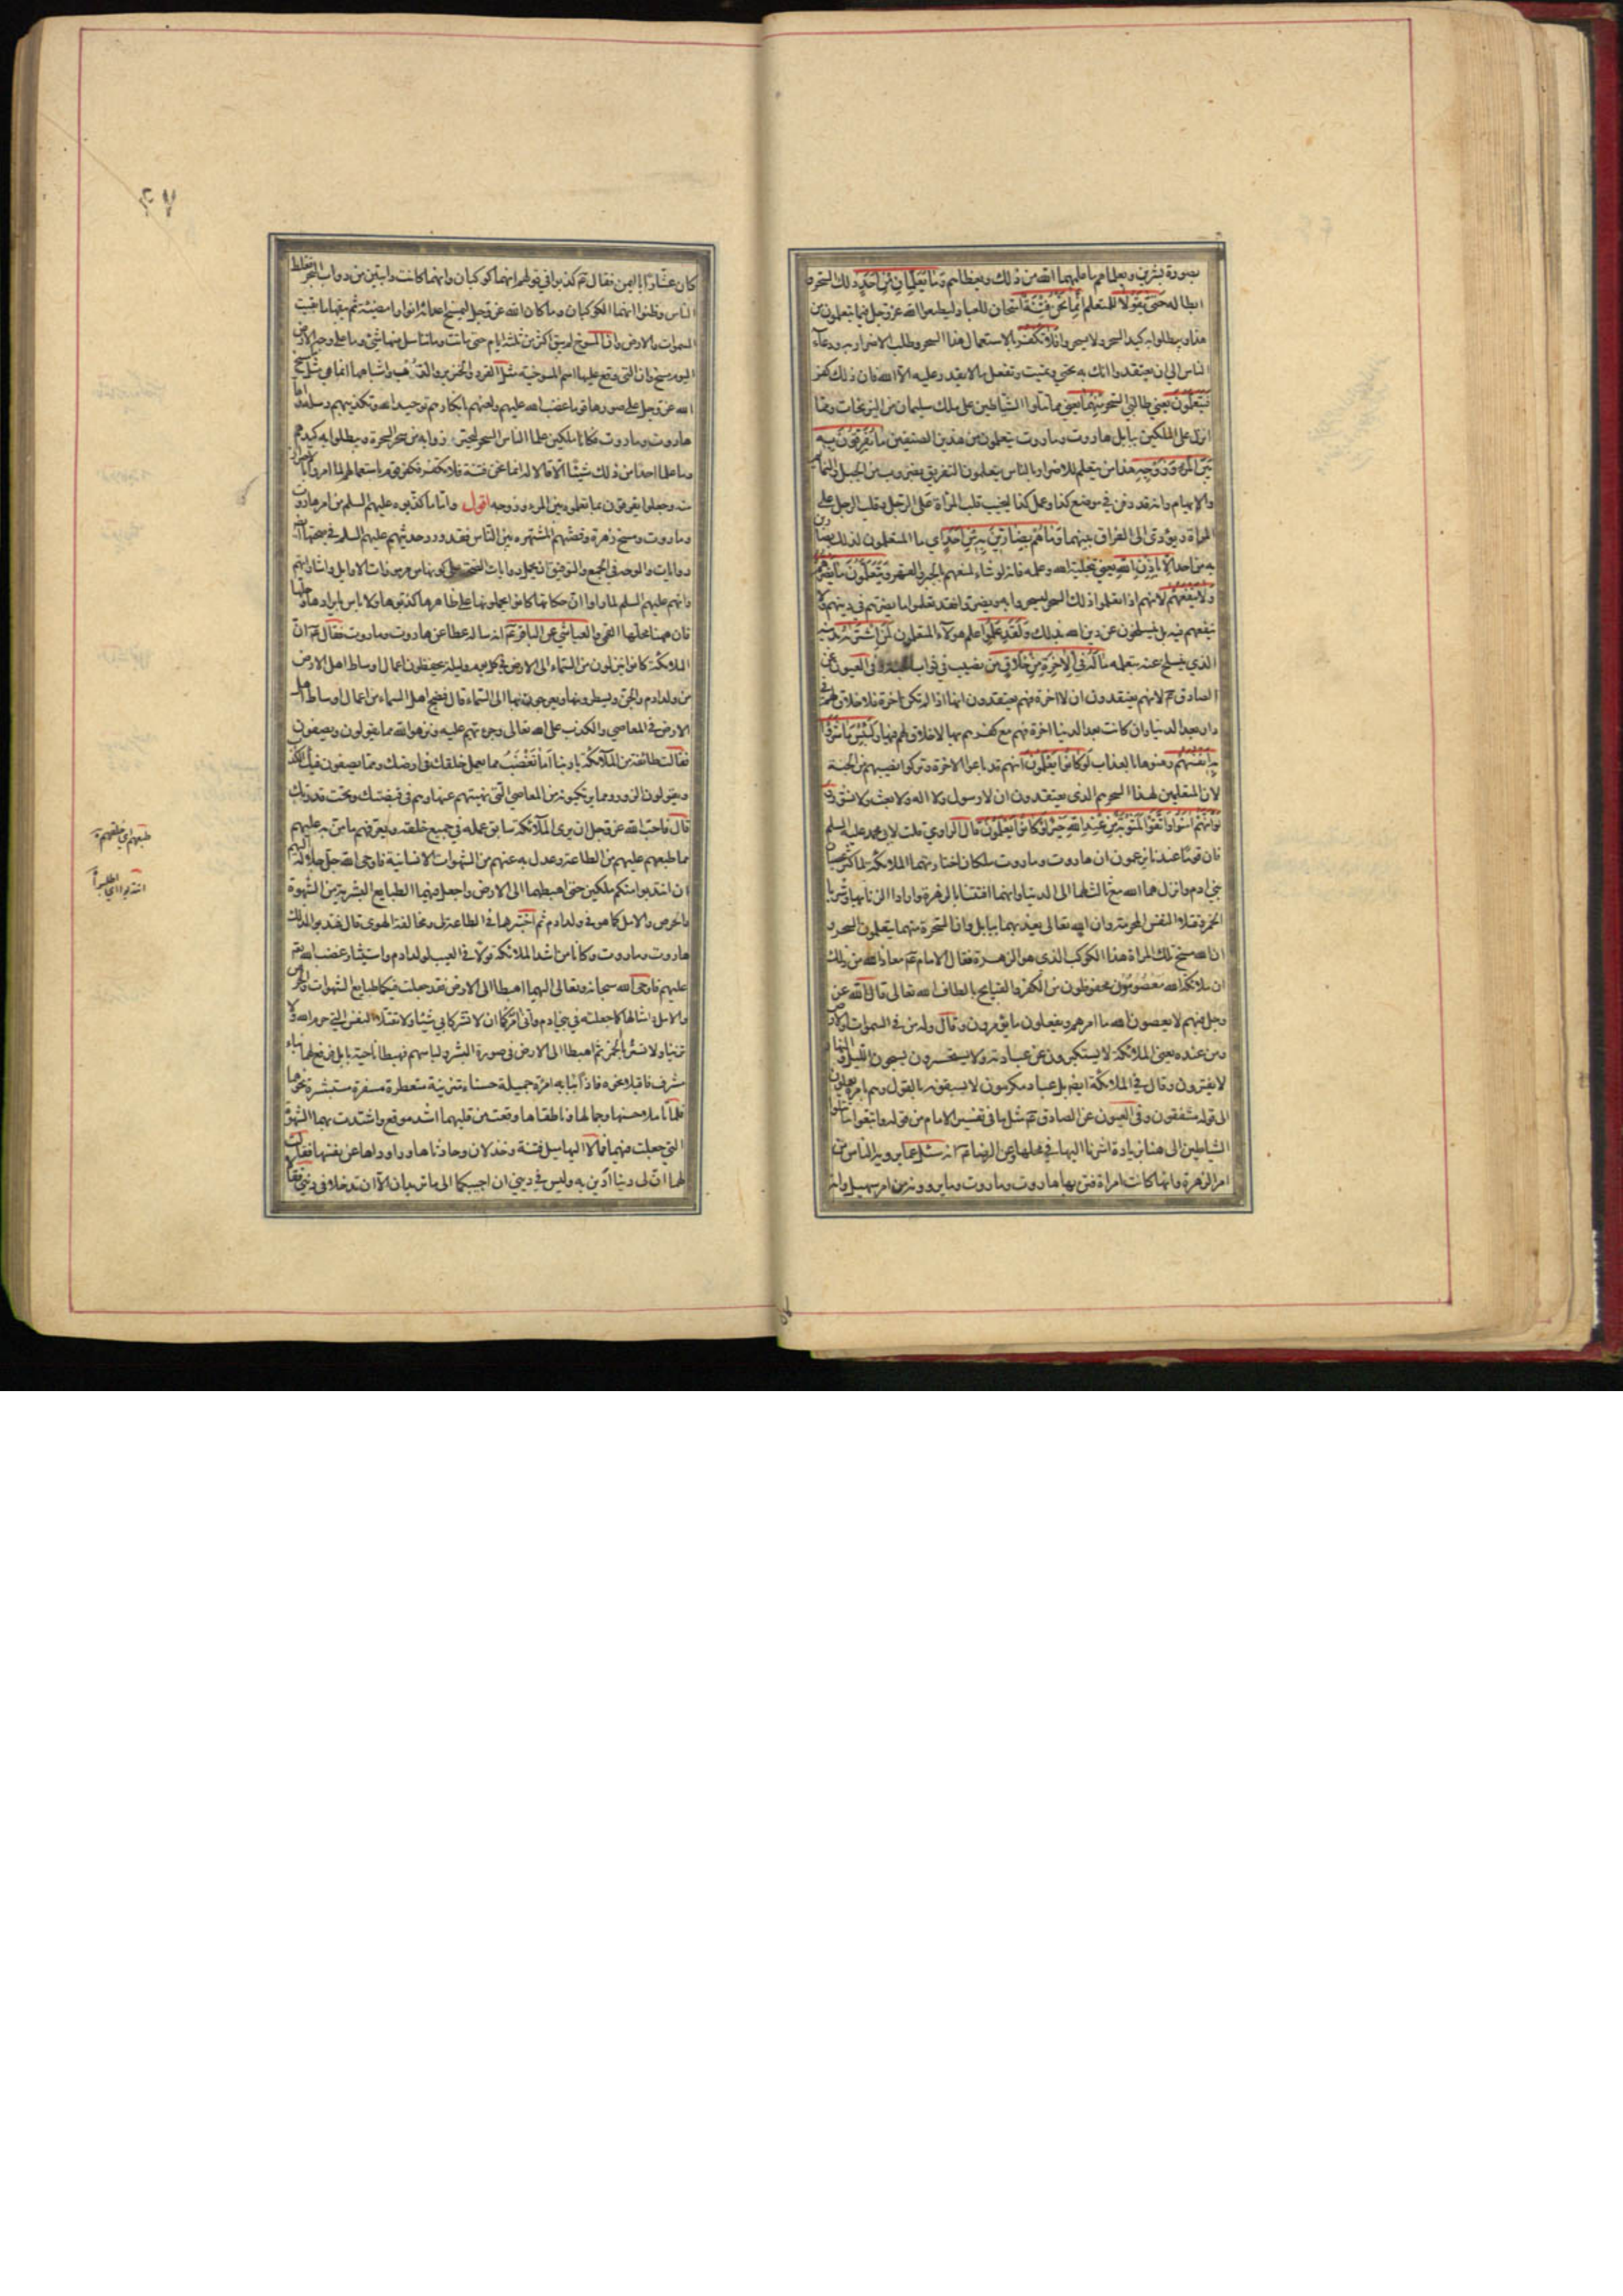 بصورة بشرين ويعلماهم ما علمهما الله من ذلك ويعظاهم وَمَا يُعَلِّمَانِ مِنْ أَحَدٍ ذلك السحر و
ابطاله حَتّى يَقُولَا للمتعلم اِنَّمَا نَحْنُ فِتْنَةٌ امتحان للعباد ليطيعوا الله عز وجل فيما يتعلمون من
هذا ويبطلوا به كيد السحر ولا يسحروا فَلَا تَكْفُرْ باستعمال هذا السحر وطلب الاضرار به ودعاء
الناس الى ان يعتقدوا انك به تحيي وتميت وتفعل ما لا يقدر عليه الا الله فان ذلك كفر
فَيَتَعَلَّمُونَ يعني طالبي السحر مِنْهُمَا يعني مما تتلوا الشياطين على ملك سليمان من النيرنجات ومما
انزل على الملكين ببابل هاروت وماروت يتعلمون من هذين الصنفين مَا يُفَرِّقُونَ بِهِ
بَيْنَ الْمَرْءِ وَزَوْجِهِ هذا من يتعلم للاضرار بالناس يتعلمون التفريق بضروب من الحيل والنمائم
والايهام وانه قد دفن في موضع كذا وعمل كذا ليحبب قلب المرأة على الرجل وقلب الرجل على
المراة ويؤدي الى الفراق بينهما وَمَا هُمْ بِضَارّينَ بِهِ مِنْ أَحَدٍ اي ما المتعلمون لذلك بضارين
به من احد اِلَّا بِاِذْنِ اللهِ يعني بتخلية الله وعلمه فانه لو شاء لمنعهم بالجبر والقهر وَيَتَعَلَّمُونَ مَا يَضُرُّهُمْ
وَلَا يَنْفَعُهُمْ لانهم اذا تعلموا ذلك السحر ليسحروا به ويضروا فقد تعلموا ما يضرهم في دينهم ولا
ينفعهم فيه بل ينسلخون عن دين الله بذلك وَلَقَدْ عَلِمُوا علم هولاء المتعلمون لَمَنِ اشْتَرَاهُ بدينه
الذي ينسلخ عنه بتعلمه مَا لَهُ فِي الْآخِرَةِ مِنْ خَلَاقٍ من نصيب في ثواب الجنة وفى العيون عن
الصادق ع لانهم يعتقدون ان لا اخرة فهم يعتقدون انها اذا لم تكن اخرة فلا خلاق لهم في
دار بعد الدنيا وان كانت بعد الدنيا اخرة فهم مع كفرهم بها لا خلاق لهم فيها وَلَبِئْسَ مَا شَرَوْا
بِهِ اَنْفُسَهُمْ رهنوها بالعذاب لَوْ كَانُوا يَعْلَمُونَ انهم قد باعوا الاخرة وتركوا نصيبهم من الجنة
لان المتعلمين لهذا السحر هم الذى يعتقدون ان لا رسول ولا اله ولا بعث ولا نشور
وَلَوْ اَنَّهُمْ آمَنُوا وَاتَّقَوْا لَمَثُوبَةٌ مِنْ عِنْدِ اللهِ خَيْرٌ لَوْ كَانُوا يَعْلَمُونَ قال الراوي قلت لابي محمد عليه السلم
فان قوما عندنا يزعمون ان هاروت وماروت ملكان اختارتهما الملائكة لما كثر عصيان
بني ادم وانزلهما الله مع ثالث لهما الى الدنيا وانهما افتتنا بالزهرة وارادا الزنا بها وشربا
الخمر وقتلا النفس المحرمة وان الله تعالى يعذبهما ببابل وان السحرة منهما يتعلمون السحر و
ان الله مسخ تلك المراة هذا الكوكب الذى هو الزهرة فقال الامام ع معاذ الله من ذلك
ان ملائكة الله مَعْصُومُون محفوظون من الكفر والقبايح بالطاف الله تعالى قال الله عز
وجل فيهم لا يعصون الله ما امرهم ويفعلون ما يؤمرون وقال وله من في السموات والارض
ومن عنده يعني الملائكة لا يستكبرون عن عبادته ولا يستحسرون يسبحون الليل والنهار
لا يفترون وقال في الملائكة ايضا بل عباد مكرمون لا يسبقونه بالقول وهم بامره يعملون
الى قوله مشفقون وفى العيون عن الصادق ع مثل ما في تفسير الامام من قوله واتبعوا ما تتلوا
الشياطين الى هنا بزيادة اشرنا اليها في محلها وعن الرضا ع انه سئل عما يرويه الناس من
امر الزهرة وانها كانت امراة فتن بها هاروت وماروت وما يروونه من امر سهيل وانه
كان عشارا باليمن فقال ع كذبوا في قولهم انهما كوكبان وانهما كانتا دابتين من دواب البحر فغلط
الناس وظنوا انهما الكوكبان وما كان الله عز وجل ليمسخ اعدائه انوارا مضيئة ثم يبقيها ما بقيت
السموات والارض وان المسوخ لم يبق اكثر من ثلثة ايام حتى ماتت وما تناسل منها شئ وما على وجه الارض
اليوم مسخ وان التي وقع عليها اسم المسوخية مثل القرد والخنزير والدب واشباهها انما هي مثل ما مسخ
الله عز وجل على صورها قوما غضب الله عليهم ولعنهم بانكارهم توحيد الله وتكذيبهم رسله واما
هاروت وماروت فكانا ملكين علما الناس السحر ليحترزوا به من سحر السحرة ويبطلوا به كيدهم
وما علما احدا من ذلك شيئا الا قالا له انما نحن فتنة فلا تكفر فكفر قوم باستعمالهم لما امروا بالاحتراز
منه وجعلوا يفرقون بما تعلموه بين المرء وزوجه اقول واما ما كذبوه عليهم السلم من امر هاروت
وماروت ومسخ زهرة وقصتهم المشتهره بين الناس فقد ورد حديثهم عليهم السلم في صحتها ايضا
روايات والوجه في الجمع والتوفيق ان يحمل روايات الصحة على كونها من مرموزات الاوايل واشاراتهم
وانهم عليهم السلم لما راوا ان حكاتها كانوا يحملونها على ظاهرها كذبوها ولا باس بايرادها وحلها
فان ههنا محلها القمي والعياشي عن الباقر ع انه ساله عطا عن هاروت وماروت فقال ع ان
الملائكة كانوا ينزلون من السماء الى الارض في كل يوم وليلة يحفظون اعمال اوساط اهل الارض
من ولد ادم والجن ويسطرونها ويعرجون بها الى السماء قال فضج اهل السماء من اعمال اوساط اهل
الارض في المعاصي والكذب على الله تعالى وجرءتهم عليه ونزهوا الله مما يقولون ويصفون
فقالت طائفة من الملائكة يا ربنا اَمَا تَغْضَبُ مما يعمل خلقك في ارضك ومما يصفون فيك الكذب
ويقولون الزور ومما يرتكبونه من المعاصي التي نهيتهم عنها وهم في قبضتك وتحت قدرتك
قال فاحب الله عز وجل ان يرى الملائكة سابق علمه في جميع خلقه ويعرفهم ما من به عليهم
مما طبعهم عليهم من الطاعة وعدل به عنهم من الشهوات الانسانية فاوحى الله جل جلاله اليهم
ان انتدبوا منكم ملكين حتى اهبطهما الى الارض واجعل فيهما الطبايع البشرية من الشهوة
والحرص والامل كما هو في ولد ادم ثم اختبرهما في الطاعة لى ومخالفة الهوى قال فندبوا لذلك
هاروت وماروت وكانا من اشد الملائكة قولا في العيب لولد ادم واستيثار غضب الله تع
عليهم فاوحى الله سبحانه وتعالى اليهما اهبطا الى الارض فقد جعلت فيكما طبايع الشهوات والحرص
والامل وامثالها كما جعلته في بني ادم وانى آمركما ان لا تشركا بي شيئا ولا تقتلا النفس التي حرم الله ولا
تزنيا ولا تشربا الخمر ثم اهبطا الى الارض في صورة البشر ولباسهم فهبطا ناحية بابل فرفع لهما بناء
مشرف فاقبلا نحوه فاذا ببابه امرءة جميلة حسناء متزينة متعطرة مسفرة مستبشرة نحوهما
فلما تاملا حسنها وجمالها وناطقاها وقعت من قلبهما اشد موقع واشتدت بهما الشهوة
التي جعلت فيهما فمالا اليها ميل فتنة وخذلان وحادثاها وراوداها عن نفسها فقالت
لهما ان لى دينا ادين به وليس في ديني ان اجيبكما الى ما تريدان الا ان تدخلا في ديني فقالا
طبعهم اي خلقهم
انتدبوا اي اطلبوا